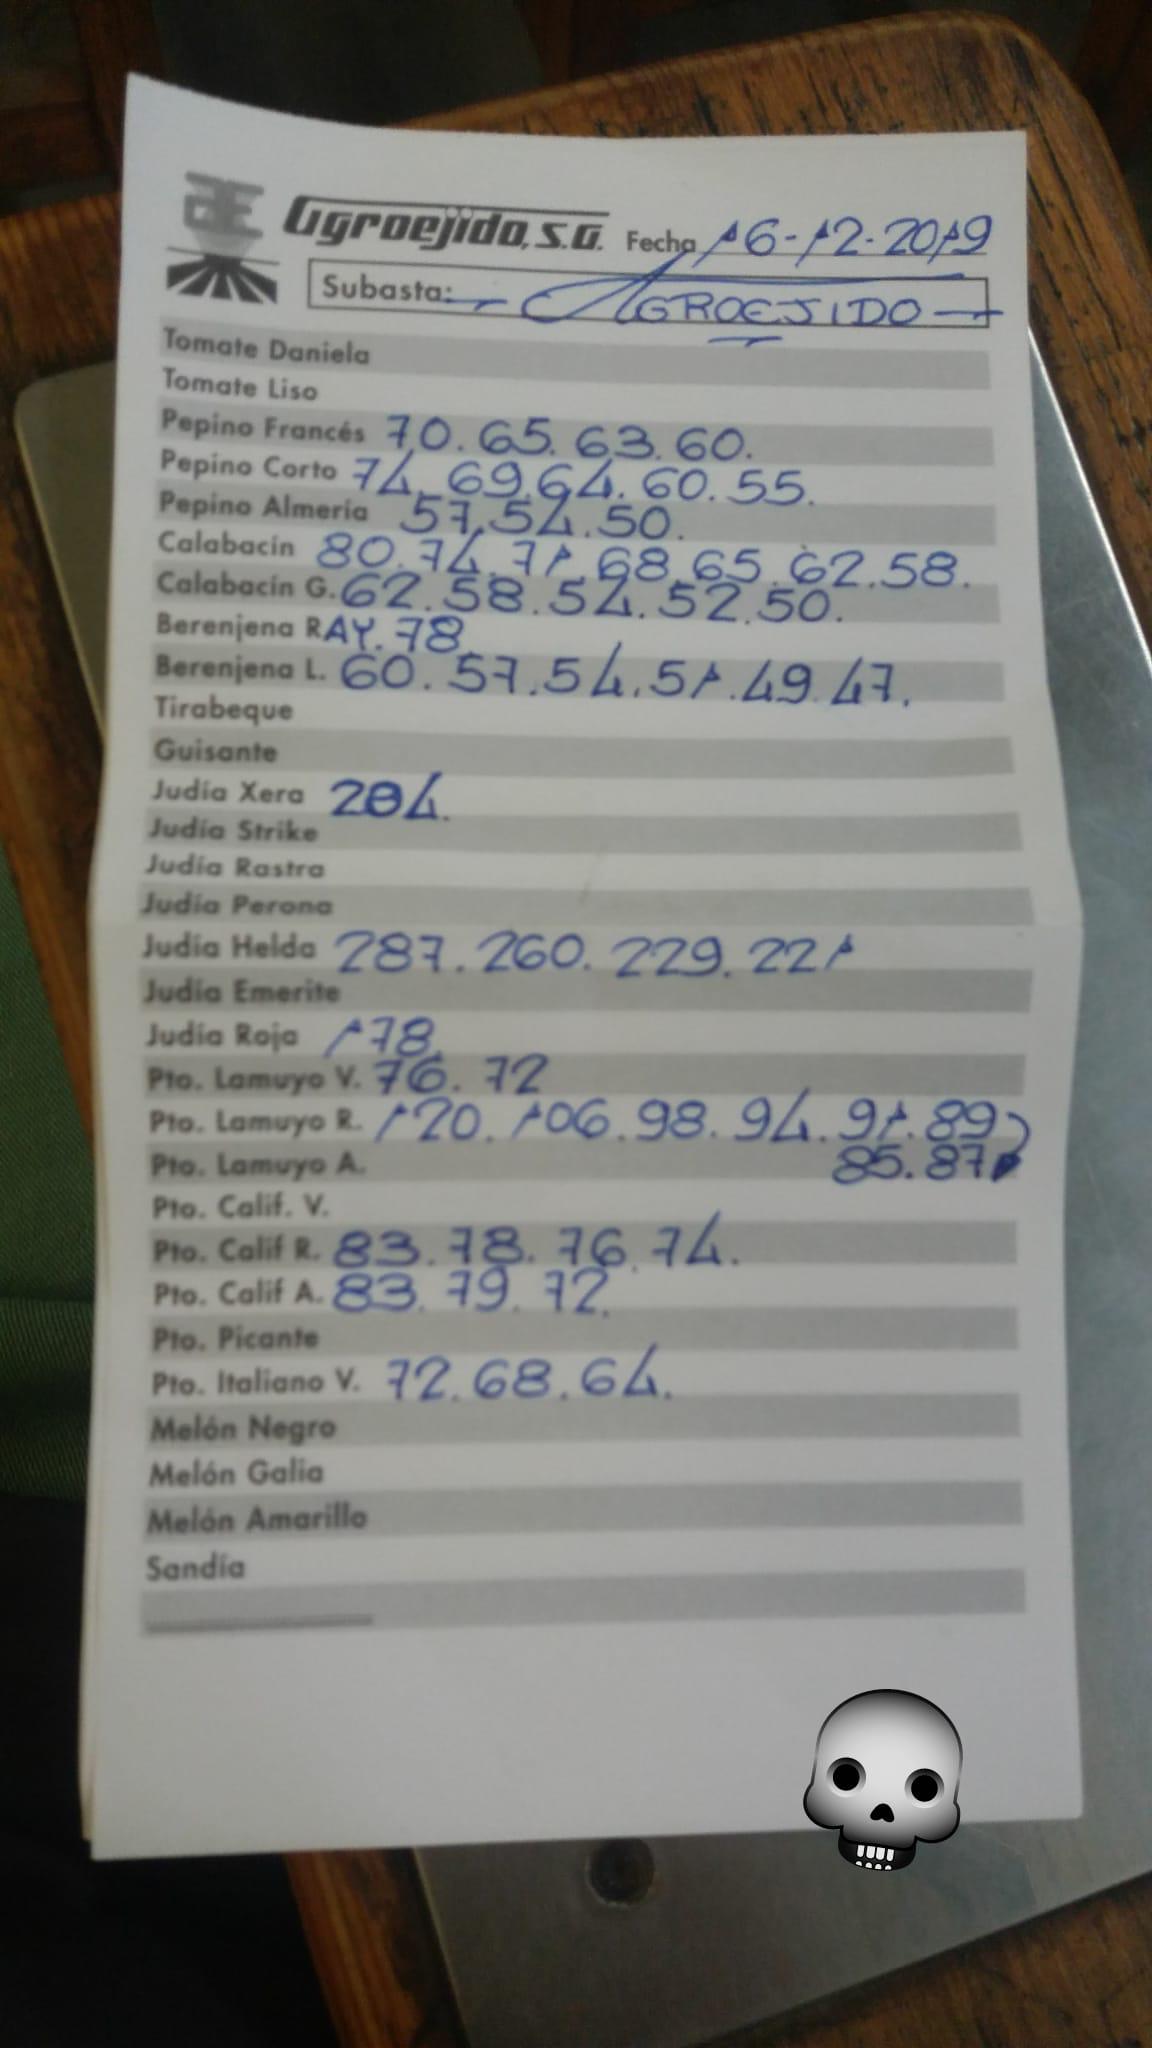 Agroejido, S.A. Fecha 16-12-2019
Subasta: AGROEJIDO
Tomate Daniela
Tomate Liso
Pepino Francés 70. 65. 63. 60.
Pepino Corto 74. 69. 64. 60. 55.
Pepino Almería 57. 54. 50.
Calabacín 80. 74. 71. 68. 65. 62. 58.
Calabacín G. 62. 58. 54. 52. 50.
Berenjena RAY. 78.
Berenjena L. 60. 57. 54. 51. 49. 47.
Tirabeque
Guisante
Judía Xera 284.
Judía Strike
Judía Rastra
Judía Perona
Judía Helda 287. 260. 229. 221
Judía Emerite
Judía Roja 178.
Pto. Lamuyo V. 76. 72
Pto. Lamuyo R. 120. 106. 98. 94. 91. 89
Pto. Lamuyo A. 85. 87
Pto. Calif. V.
Pto. Calif R. 83. 78. 76. 74.
Pto. Calif A. 83. 79. 72.
Pto. Picante
Pto. Italiano V. 72. 68. 64.
Melón Negro
Melón Galia
Melón Amarillo
Sandía